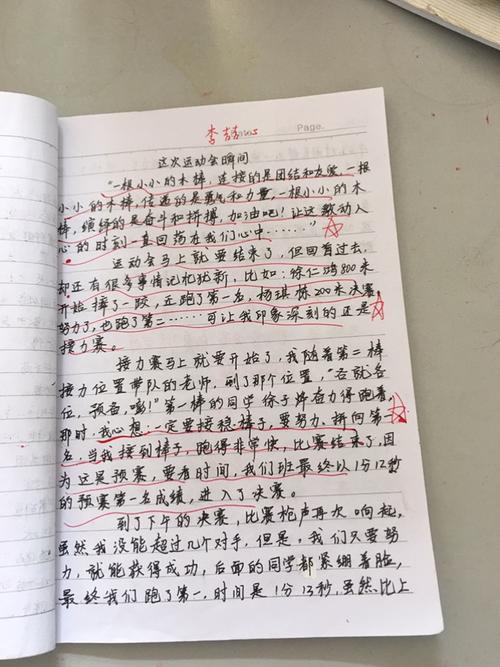 李喆
Page.
这次运动会瞬间
“一根小小的木棒，连接的是团结和友爱，一根
小小的木棒，传递的是勇气和力量，一根小小的木
棒，缤纷的是奋斗和拼搏，加油吧！让这激动人
心的时刻一直回荡在我们心中……”
运动会马上就要结束了，但回首过去，
却还有很多事情记忆犹新，比如：徐仁鸿800米
开始摔了一跤，还跑了第一名，杨琪栋200米决赛，
努力了，也跑了第二……可让我印象深刻的还是
接力赛。
接力赛马上就要开始了，我随着第二棒
接力位置带队的老师，到了那个位置，“各就各
位，预备，嘭！”第一棒的同学徐子烨奋力得跑着，
那时，我心想：一定要接稳棒子，要努力，拼向第一
名，当我接到棒子，跑得非常快，比赛结束了，因
为这是预赛，要看时间，我们班最终以1分12秒
的预赛第一名成绩，进入了决赛。
到了下午的决赛，比赛枪声再次响起，
虽然我没能超过几个对手，但是，我们只要努
力，就能获得成功，后面的同学都紧绷着脸，
最终我们跑了第一，时间是1分13秒，虽然比上